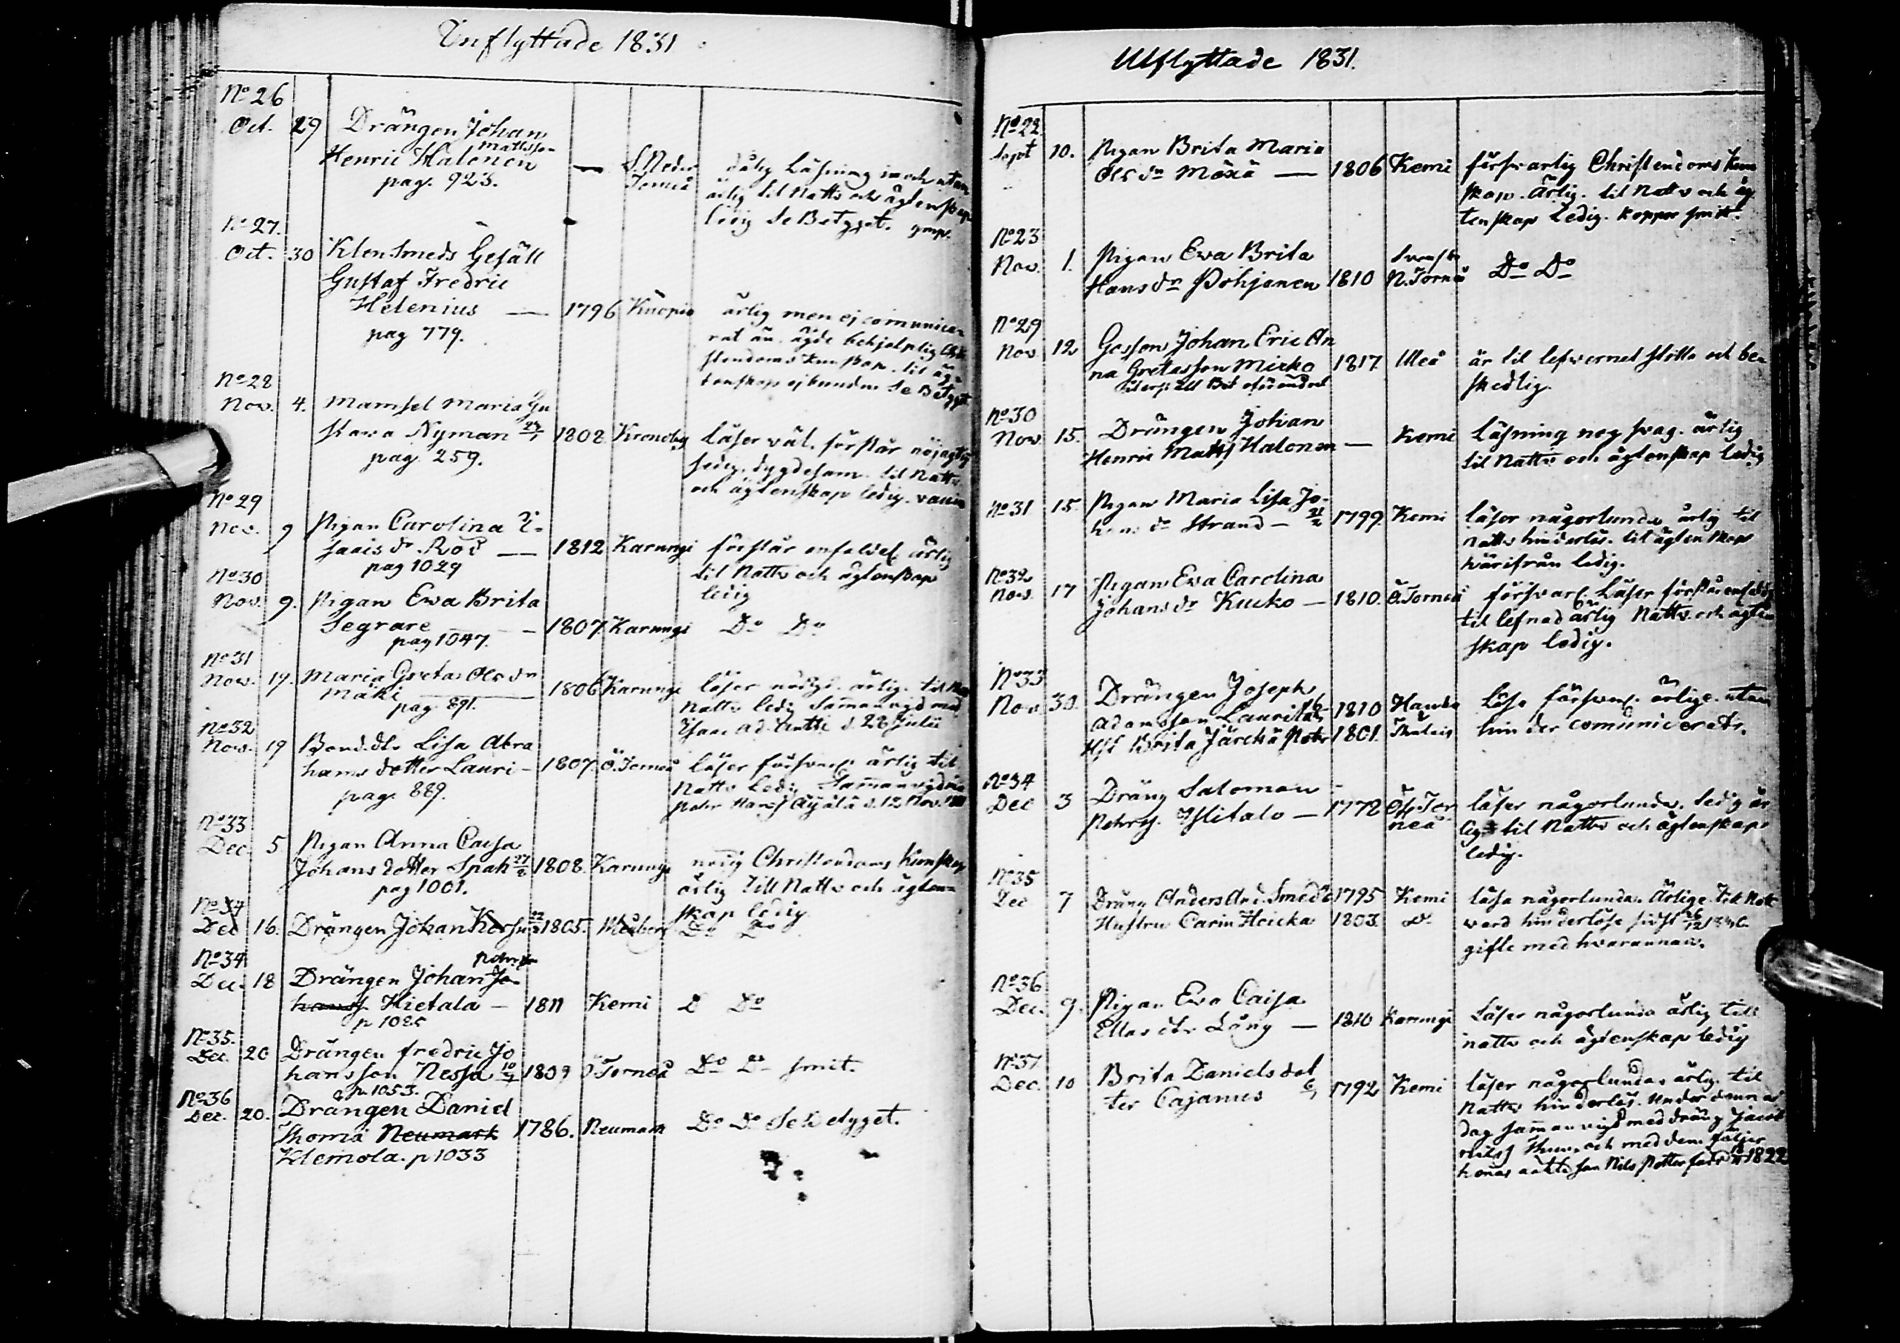 Inflyttade 1831
No 26
Oct. 29 Drängen Johan
Mattsson
Henric Halonen — N. Neder
pag. 923. Torneå
dålig Läsning inoch utan
ärlig til Natts och ägtenskap
ledig Se Betyget.
No 27.
Oct. 30 Klensmeds Gesäll
Gustaf Fredric
Helenius — 1796 Kuopio ärlig men ej comunice-
pag 779. rat än. ägde behjelplig Chri
stendoms kunskap. til äg-
tenskap ej bunden Se Betyget
No 28
Nov. 4. Mamsel Maria Gu
stava Nyman 1808 Kronoby Läser väl. förstår nöjagtig
pag. 259. sedig. dygdesam. til Nattv
och ägtenskap ledig. vaccin
No 29
Nov. 9 Pigan Carolina I-
saacs dr Rod — 1812 Karungi förstår enfaldel ärlig
pag 1029 til Nattv och ägtenskap
ledig
No 30
Nov. 9. Pigan Ewa Brita
Segrare — 1807 Karungi Do Do
pag 1047.
No 31
Nov. 17. Maria Greta Ols dr
Mäki 1806 Karungi läser nödigt. ärlig. til
pag 891. Nattv ledig Sammanvigd med
d 28 Julii
No 32
Nov. 19 Bond.dtr Lisa Abra
hams dotter Lauri — 1807. Ö. Torneå läser försvarl ärlig til
pag. 889. Nattv Ledig Sammanvigd
Petter Hansson Äijälä d. 12 Nov.
No 33
Dec. 5 Pigan Anna Caisa
Johans dotter Spak 27/2 1808. Karungi nödig Christendoms kunskap
pag 1001. ärlig Till Nattv och ägten-
skap ledig
No 34
Dec 16. Drängen Johan 1805. Do Do
No 34 Petersson
Dec. 18 Drängen Johan Jo-
hanss Hietala — 1811 Kemi D Do
p 1025
No 35.
Dec. 20 Drängen Fredric Jo
hansson Nessa 10/9 1809 Ö Torneå Do Do smit.
p 1053.
No 36
Dec. 20. Drängen Daniel
Thomä Neumark 1786. Neumark Do Do Se betyget.
Klemola. p 1033
Utflyttade 1831.
No 22
Sept 10. Pigan Brita Maria
Ols dr Möxä — 1806 Kemi försvarlig Christendoms kun
skap. Ärlig. til Nattv och äg
tenskap Ledig. koppor smitt.
No 23
Nov. 1. Pigan Ewa Brita
Hans dr Pohjanen 1810 N. Torneå Do Do
No 29
Nov 12 Gossen Johan Eric An
na Gretasson Micko 1817 Uleå är til lefvernet stilla och be-
skedlig
No 30
Nov 15. Drängen Johan
Henric Matts Halonen — Kemi Läsning nog svag. ärlig
til Nattv och ägtenskap ledig
No 31 15. Pigan Maria Lisa Jo-
hans dr Strand — 1799 Kemi läser någorlunda ärlig til
nattv hinderlös. til ägtenskap
härifrån ledig.
No 32
Nov. 17 Pigan Eva Carolina
Johans dr Kucko — 1810. Ö. Torneå försvarl. Läser förstår enfaldig
til lefnad ärlig Nattv. och ägten
skap ledig.
No 33
Nov. 30. Drängen Joseph
Adamsson Laurila 1810 läsa försvarl. ärlige utan
H: Brita Järckä 1801. hinder comunicerats.
No 34
Dec 3 Dräng Salomon
Petrss. Ylitalo — 1772 Öf. Tor läser någorlunda. Sedig är
neå lig til Nattv och ägtenskap
ledig.
No 35
Dec 7 Dräng Anders And. Smed 1795 Kemi läsa någorlunda. Ärlige. Til Natt
Hustru Carin Heicka 1803. do ward hinderlöse sidst
gifte med hvarannan.
No 36
Dec. 9. Pigan Eva Caisa
Elias dtr Lång — 1810 Karungi Läser någorlunda ärlig till
nattv och ägtenskap ledig
No 37
Dec. 10 Brita Daniels dot
ter Cajanus 1792 Kemi läser någorlunda ärlig til
Nattv hinderlös. Under denna
dag sammanvigd med dräng Jacob
och med dem följer
hennes oäkta son Nils Petter född 1822